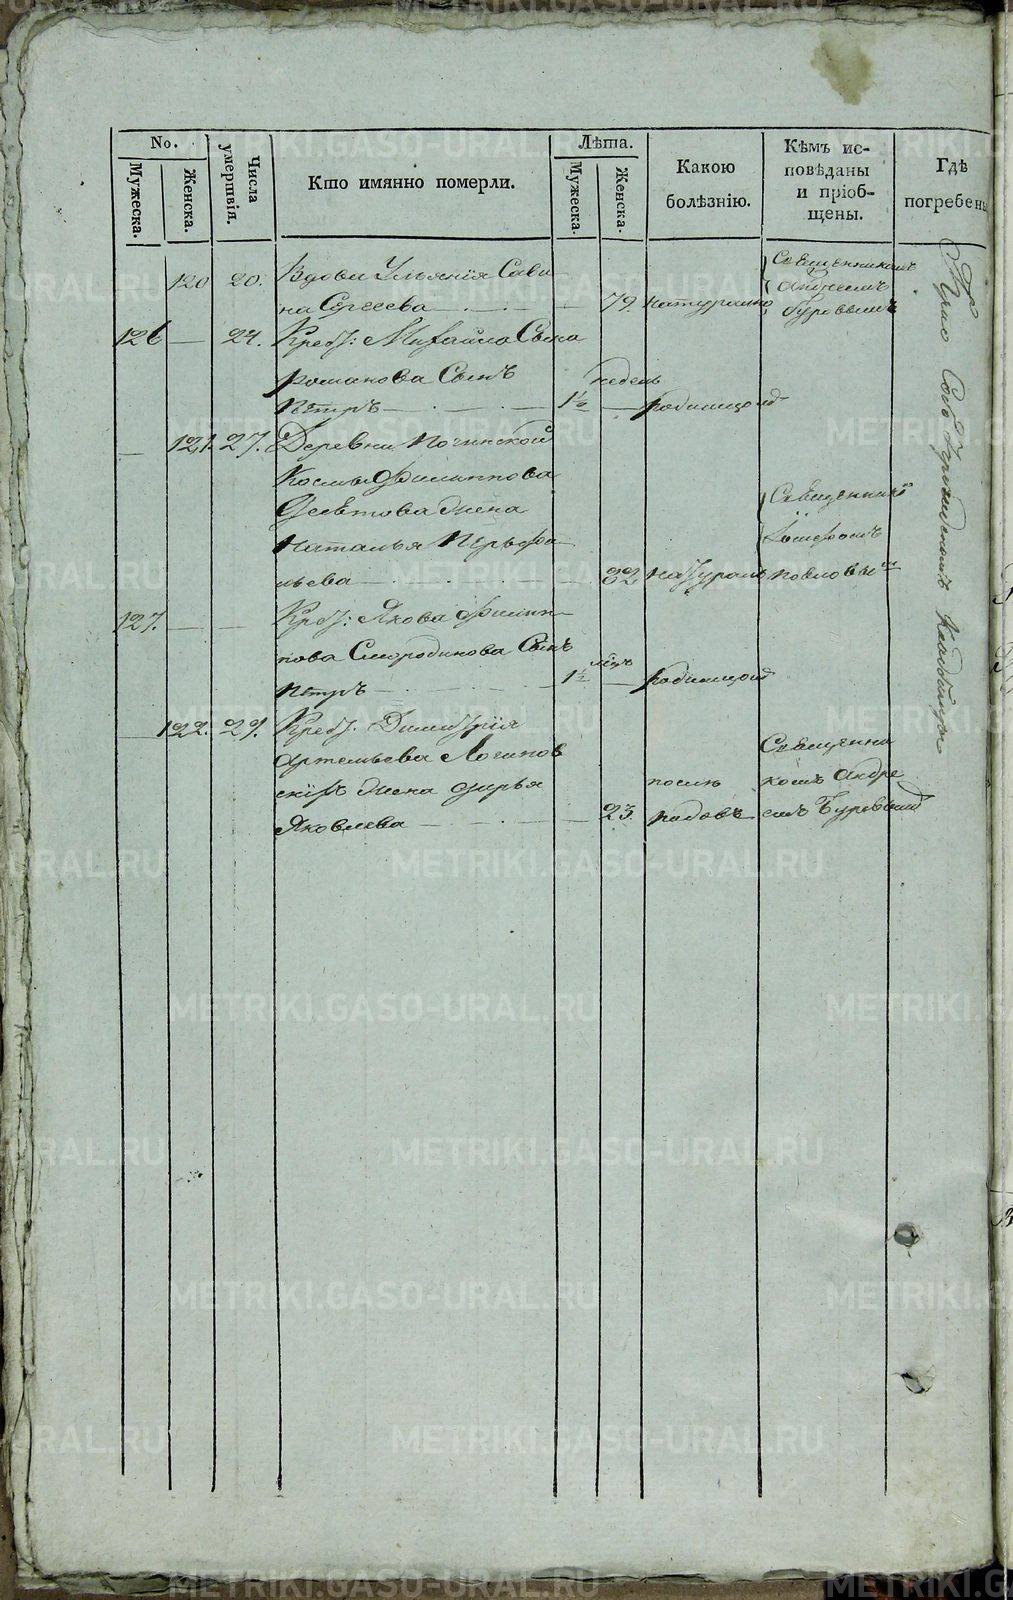 No.
Мужеска.
Женска.
Числа умертвія.
Кто имянно померли.
Лѣта.
Мужеска.
Женска.
Какою
болѣзнію.
Кѣмъ ис-
повѣданы
и пріоб-
щены.
Гдѣ
погребены
120 20. Вдова Ульянія Сави
на Сергеева 79. натурально
Священникомъ
Андреемъ
126 24. Крест: Михайла Савы
Романова Сынъ
Петръ 1½ недель родимцомъ
121. 27. Деревни Починской
Космы Филиппова
жена
Наталья Перфи
льева 82 натурально
Священник
Іосифомъ
Павловымъ
127. Крест: Якова Филип
пова Смородинова Сынъ
Петръ 1½ мѣс родимцомъ
122. 29. Крест. Димитрія
Артемьева Логинов
скихъ жена Дарья
Яковлева 23. после родовъ
Священни
комъ Андре
емъ
METRIKI.GASO-URAL.RU